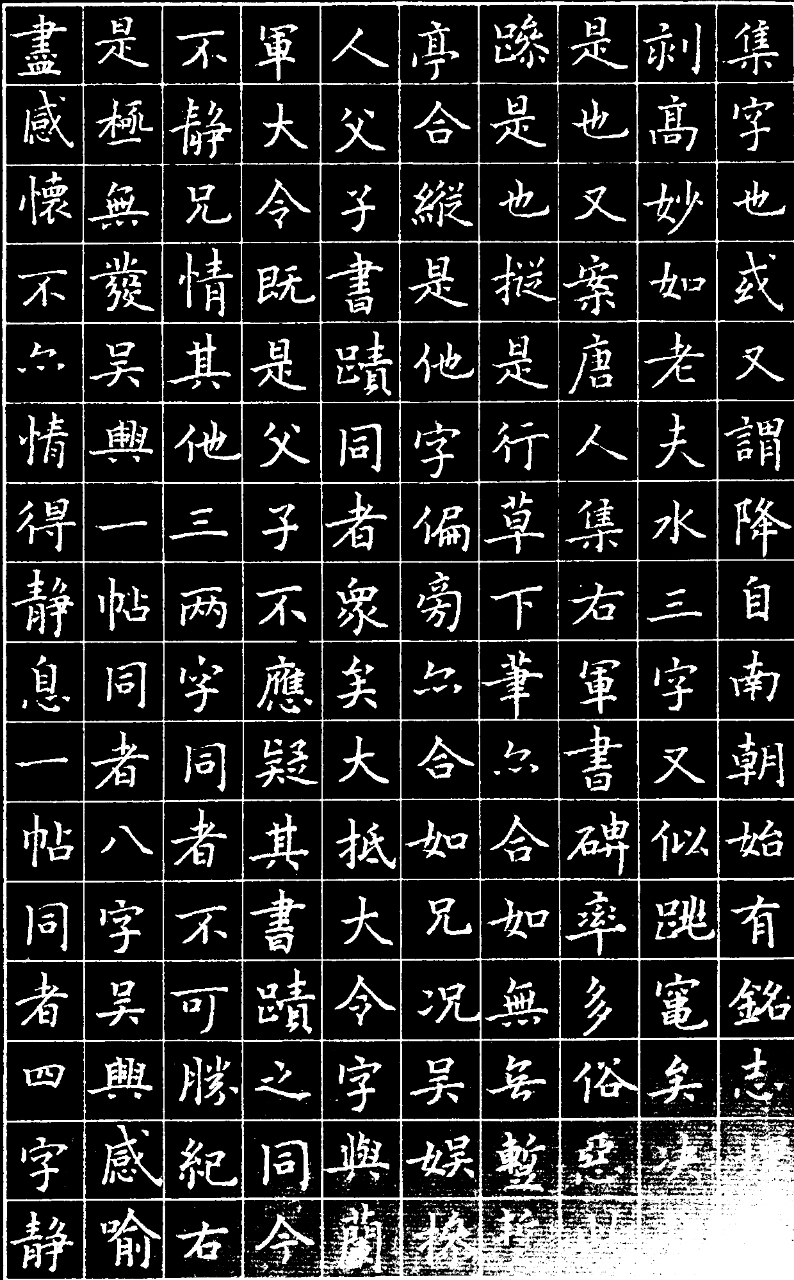 集字也或又謂降自南朝始有銘志
剥高妙如老夫水三字又似跳竈矣決
是也又案唐人集右軍書碑率多俗惡
是也摐是行草下筆亦合如無无
亭合縱是他字偏旁亦合如兄况吴娱
人父子書蹟同者衆矣大抵大令字與蘭
軍大令既是父子不應疑其書蹟之同今
不静兄情其他三两字同者不可勝紀右
是極無發吴興一帖同者八字吴興感喻
盡感懷不亦情得静息一帖同者四字静